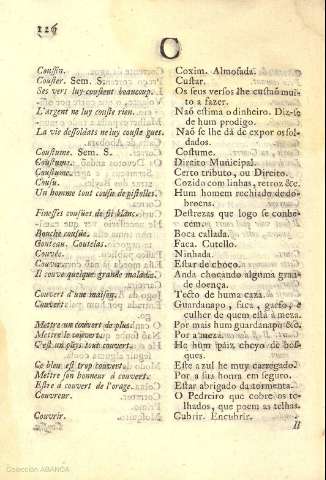 116
C
Coussin. Coxim. Almofada.
Couster. Sem. S. Custar.
Ses vers luy coustent beaucoup. Os seus versos lhe custaõ mui-
to a fazer.
L'argent ne luy couste rien. Naõ estima o dinheiro. Diz-se
de hum prodigo.
La vie des soldats ne luy couste gues. Naõ se lhe dá de expor os sol-
dados.
Coustume. Sem. S. Costume.
Coustume. Direito Municipal.
Coustume. Certo tributo, ou Direito.
Cousu. Cozido com linhas, retroz &c.
Un homme tout cousu de pistolles. Hum homem rechiado de do-
broens.
Finesses cousues de fil blanc. Destrezas que logo se conhe-
cem.
Bouche cousue. Boca callada.
Couteau. Coutelas. Faca. Cutello.
Couvée. Ninhada.
Couver. Estar de choco.
Il couve quelque grande maladie. Anda chocando alguma gran-
de doença.
Couvert d'une maison. Tecto de huma caza.
Couvert. Guardanapo, faca, garfo, e
culher de quem está á meza.
Mettre un couvert de plus. Por mais hum guardanapo &c.
Mettre le couvert. Por a meza.
C'est un pays tout couvert. He hum paiz cheyo de bos-
ques.
Ce bleu est trop couvert. Este azul he muy carregado.
Mettre son honneur à couvert. Por a sua honra em seguro.
Estre à couvert de l'orage. Estar abrigado da tormenta.
Couvreur. O Pedreiro que cobre os te-
lhados, que poem as telhas.
Couvrir. Cubrir. Encubrir.
Colección ABANCA